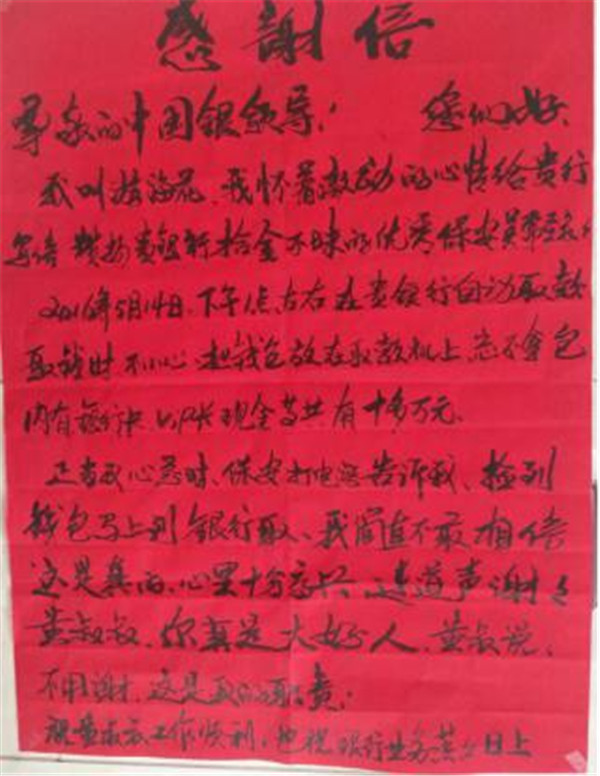 感謝信
尊敬的中国银领导： 您们好、
我叫 海花、我怀着激动的心情给贵行
写信 赞扬贵银行拾金不昧的优秀保安员
2016年5月14日、下午1点左右在贵银行自动取款
取钱时不小心把钱包放在取款机上忘了拿包
内有银行卡 现金等共有十多万元、
正当我心急时、保安打电话告诉我、捡到
钱包马上到银行取、我简直不敢相信
这是真的、心里十分高兴 连道声谢谢
黄叔叔、你真是大好人、黄叔说、
不用谢、这是我的职责；
祝黄叔叔工作顺利，也祝银行业务蒸蒸日上